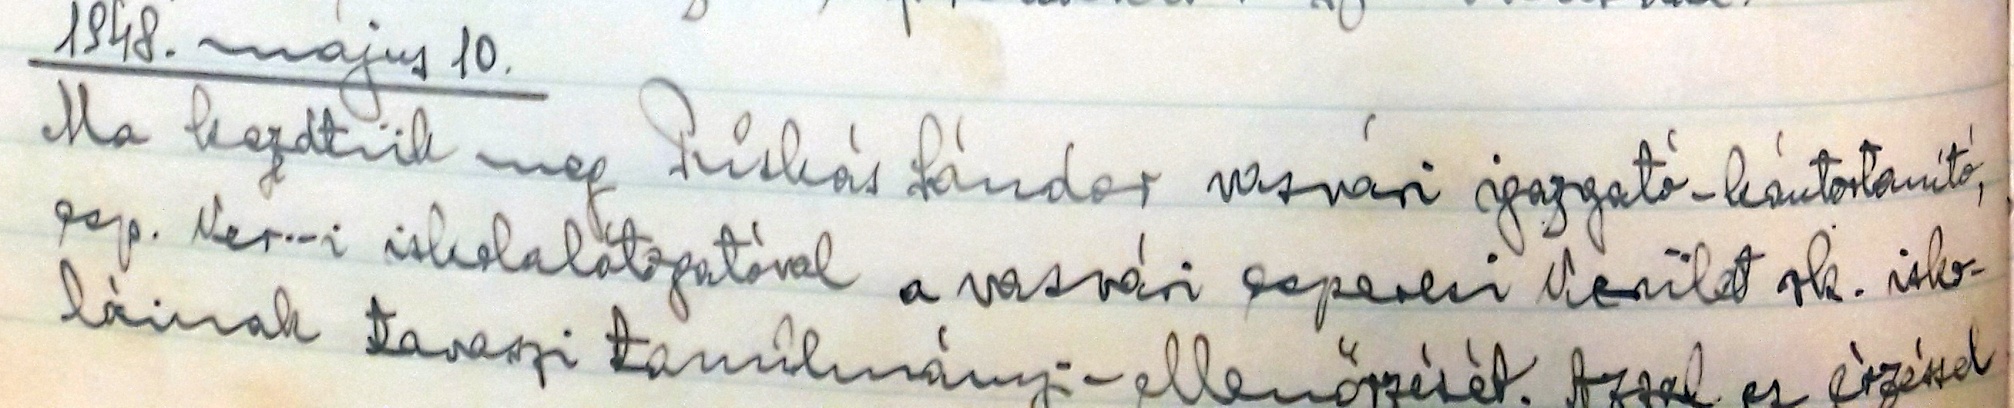 1948. május 10.
Ma kezdtük meg Püskás Sándor vasvári igazgató-kántortanító,
esp. ker.-i iskolalátogatóval a vasvári esperesi kerület rk. isko-
láinak tavaszi tanulmányi-ellenőrzését. Azzal az érzéssel